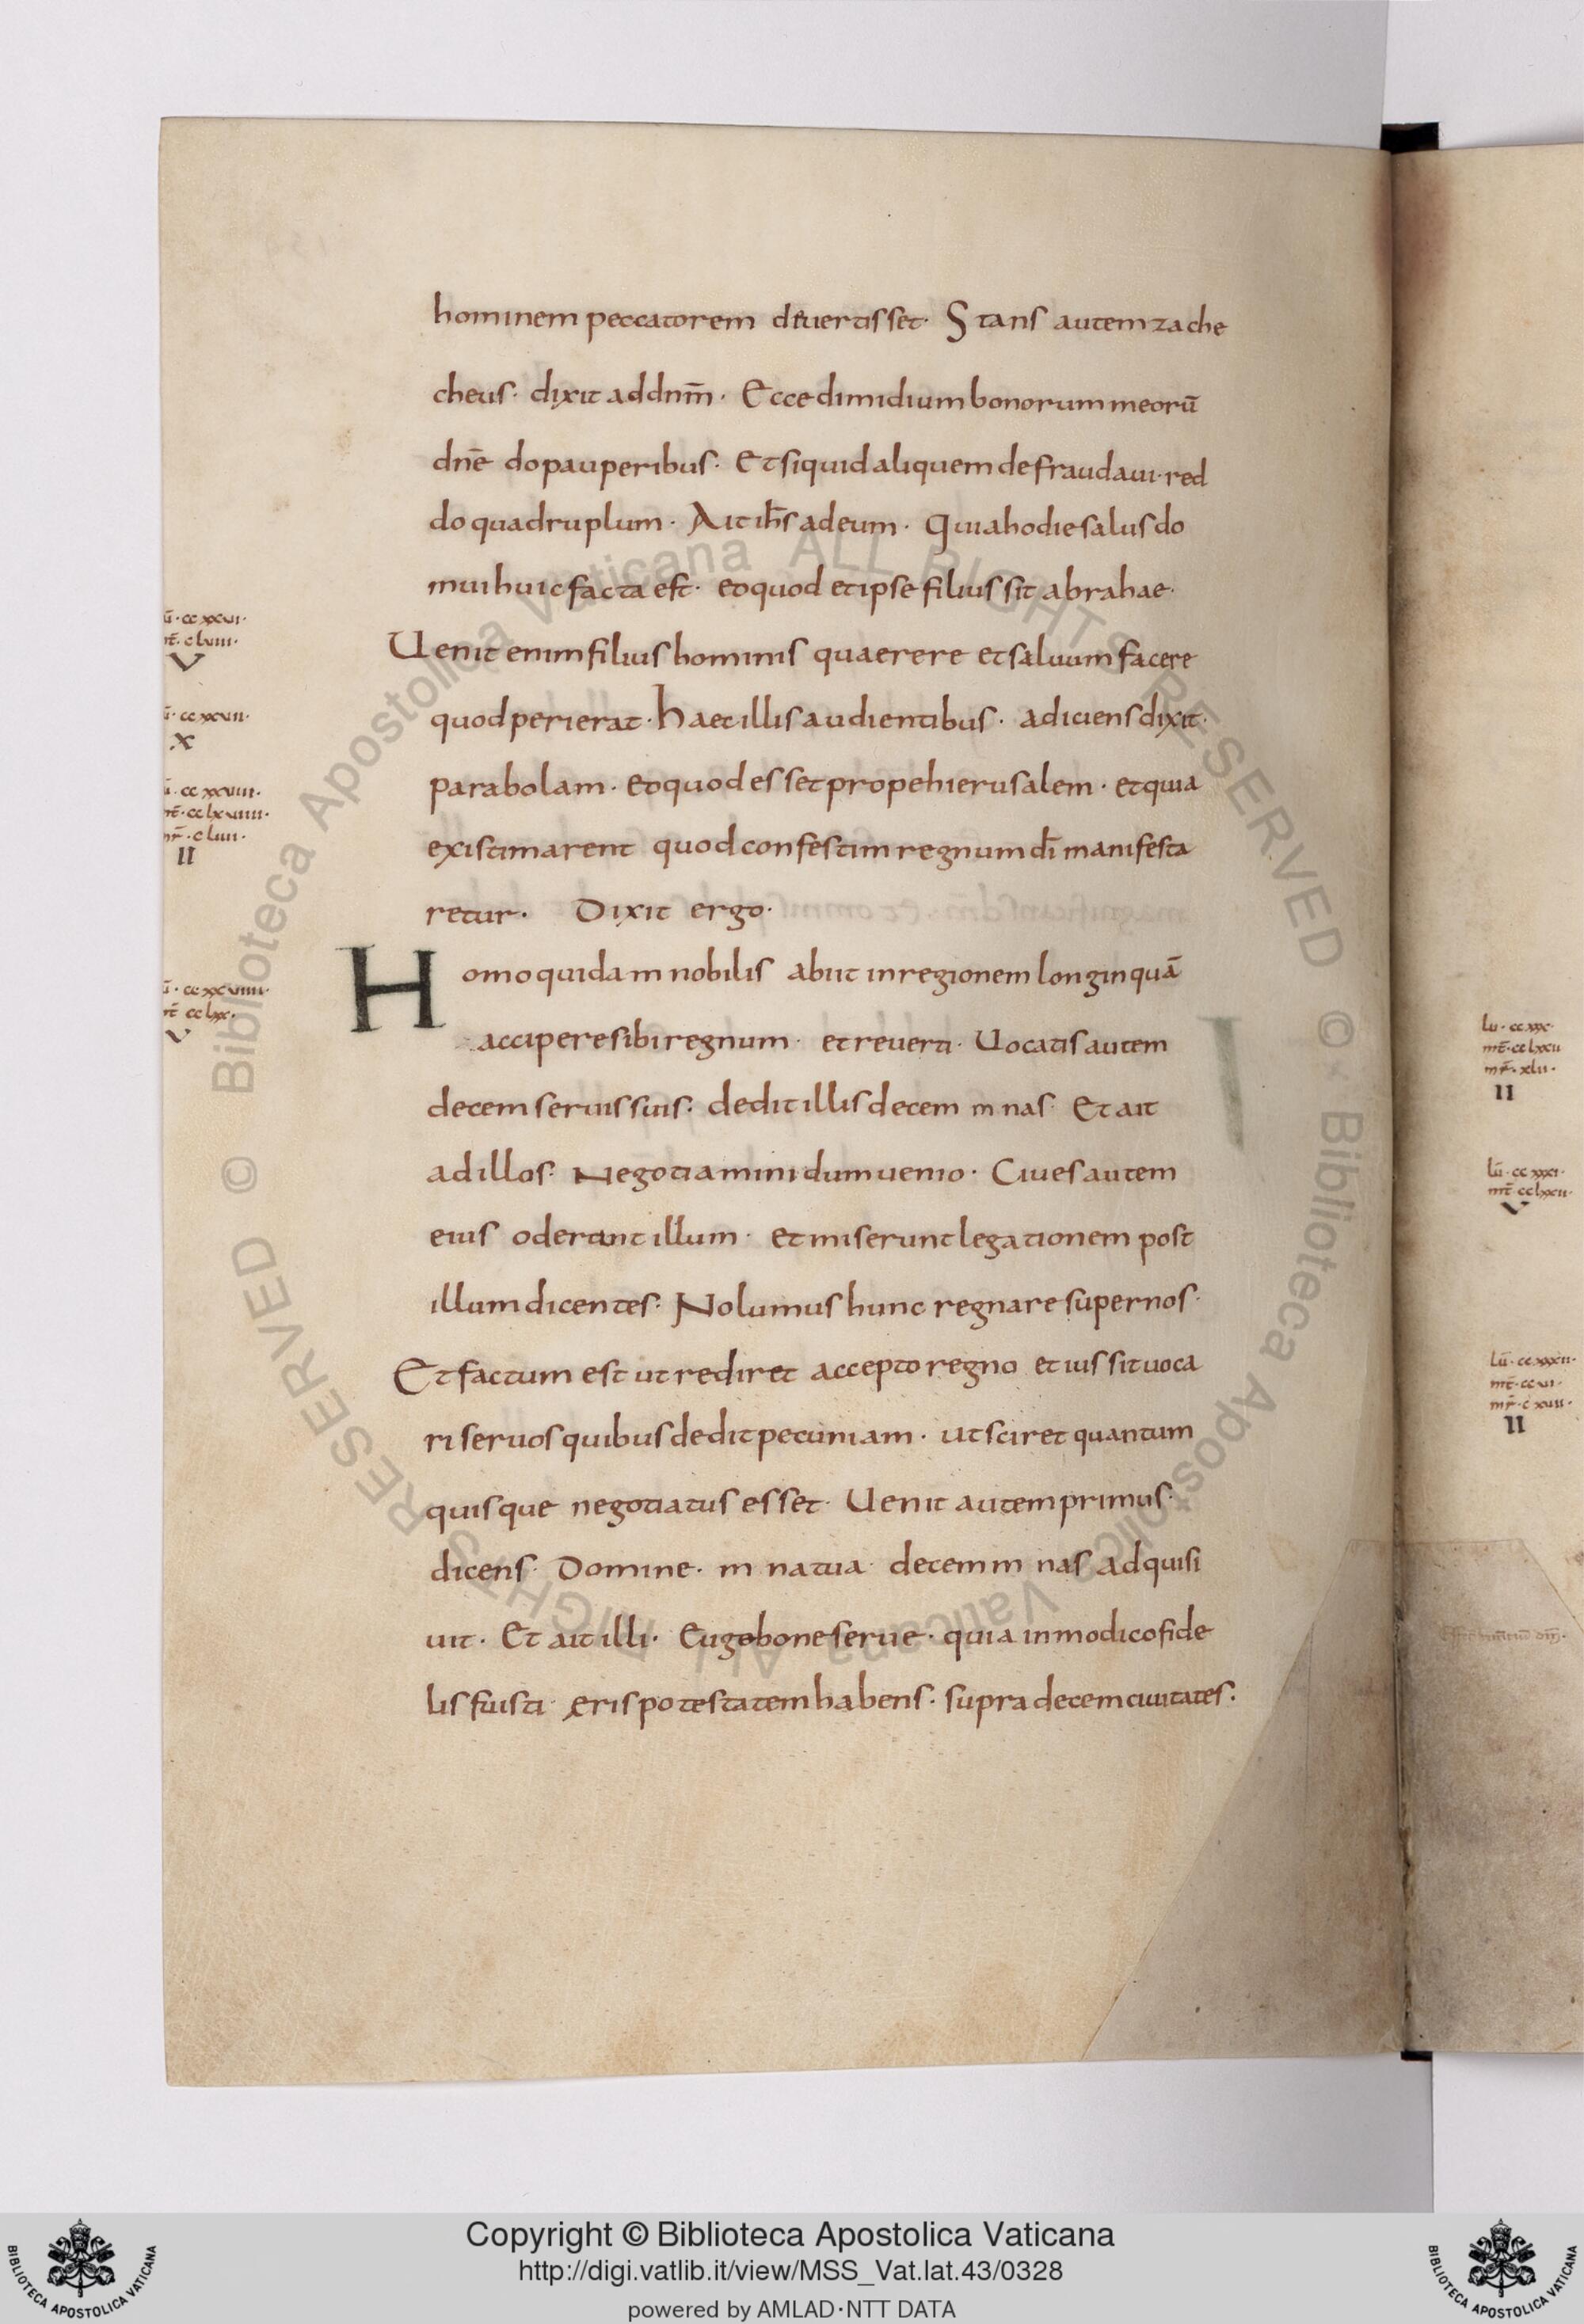 hominem peccatorem deuertisset· Stans autem zache
cheus· dixit ad dnm̄· Ecce dimidium bonorum meorū
dnē do pauperibus· Et si quid aliquem defraudaui· red
do quadruplum· Ait ih̄s ad eum· Quia hodie salus do
mui huic facta est· eo quod et ipse filius sit abrahae·
Uenit enim filius hominis quaerere et saluum facere
quod perierat· haec illis audientibus· adiciens dixit·
parabolam· eo quod esset prope hierusalem· et quia
existimarent quod confestim regnum dī manifesta
retur· Dixit ergo·
Homo quidam nobilis abiit in regionem longinquā
accipere sibi regnum· et reuerti· Uocatis autem
decem seruis suis· dedit illis decem mnas· Et ait
ad illos· Negotiamini dum uenio· Ciues autem
eius oderant illum· et miserunt legationem post
illum dicentes· Nolumus hunc regnare super nos·
Et factum est ut rediret accepto regno et iussit uoca
ri seruos quibus dedit pecuniam· ut sciret quantum
quisque negotiatus esset· Uenit autem primus·
dicens· Domine· mna tua· decem mnas adquisi
uit· Et ait illi· Euge bone serue· quia in modico fide
lis fuisti· eris potestatem habens· supra decem ciuitates·
ū· cc xxcvi·
mt̄· c lviii·
V
ū· cc xxcvii·
X
ū· cc xxcviii·
mt̄· cc lxviiii·
mr̄· c liii·
II
ū· cc xxcviiii·
mt̄ cc lxx·
V
lu· cc xxx·
mt̄· cc lxxii
mr̄· xlii·
II
lū· cc xxxi·
mt̄· cc lxxii·
V
lū· cc xxxii·
mt̄· cc vi·
mr̄· c xvii·
II
© Biblioteca Apostolica Vaticana ALL RIGHTS RESERVED
© Biblioteca Apostolica Vaticana ALL RIGHTS RESERVED
Copyright © Biblioteca Apostolica Vaticana
http://digi.vatlib.it/view/MSS_Vat.lat.43/0328
powered by AMLAD·NTT DATA
BIBLIOTECA APOSTOLICA VATICANA
BIBLIOTECA APOSTOLICA VATICANA